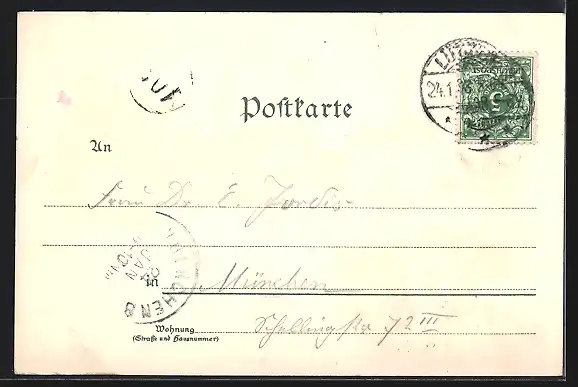 Postkarte
24.1.
5
An
Frau Dr E. Jordis
in München
MÜNCHEN 8
JAN
Wohnung
(Straße und Hausnummer)
Schellingstr 72 III